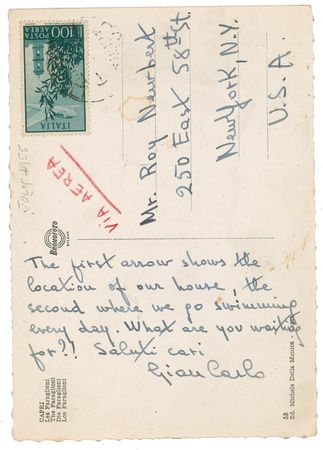 The first arrow shows the
location of our house, the
second where we go swimming
every day. What are you waiting
for?! Saluti cari
Gian Carlo
Mr. Roy Newbert
250 East 58th St.
New York, N.Y.
U.S.A.
VIA AEREA
100 L.
POSTA
AEREA
ITALIA
MILANO
CAPRI
Les Faraglioni
The Faraglioni
Die Faraglioni
Los Faraglioni
58
Ed. Michele Della Monica